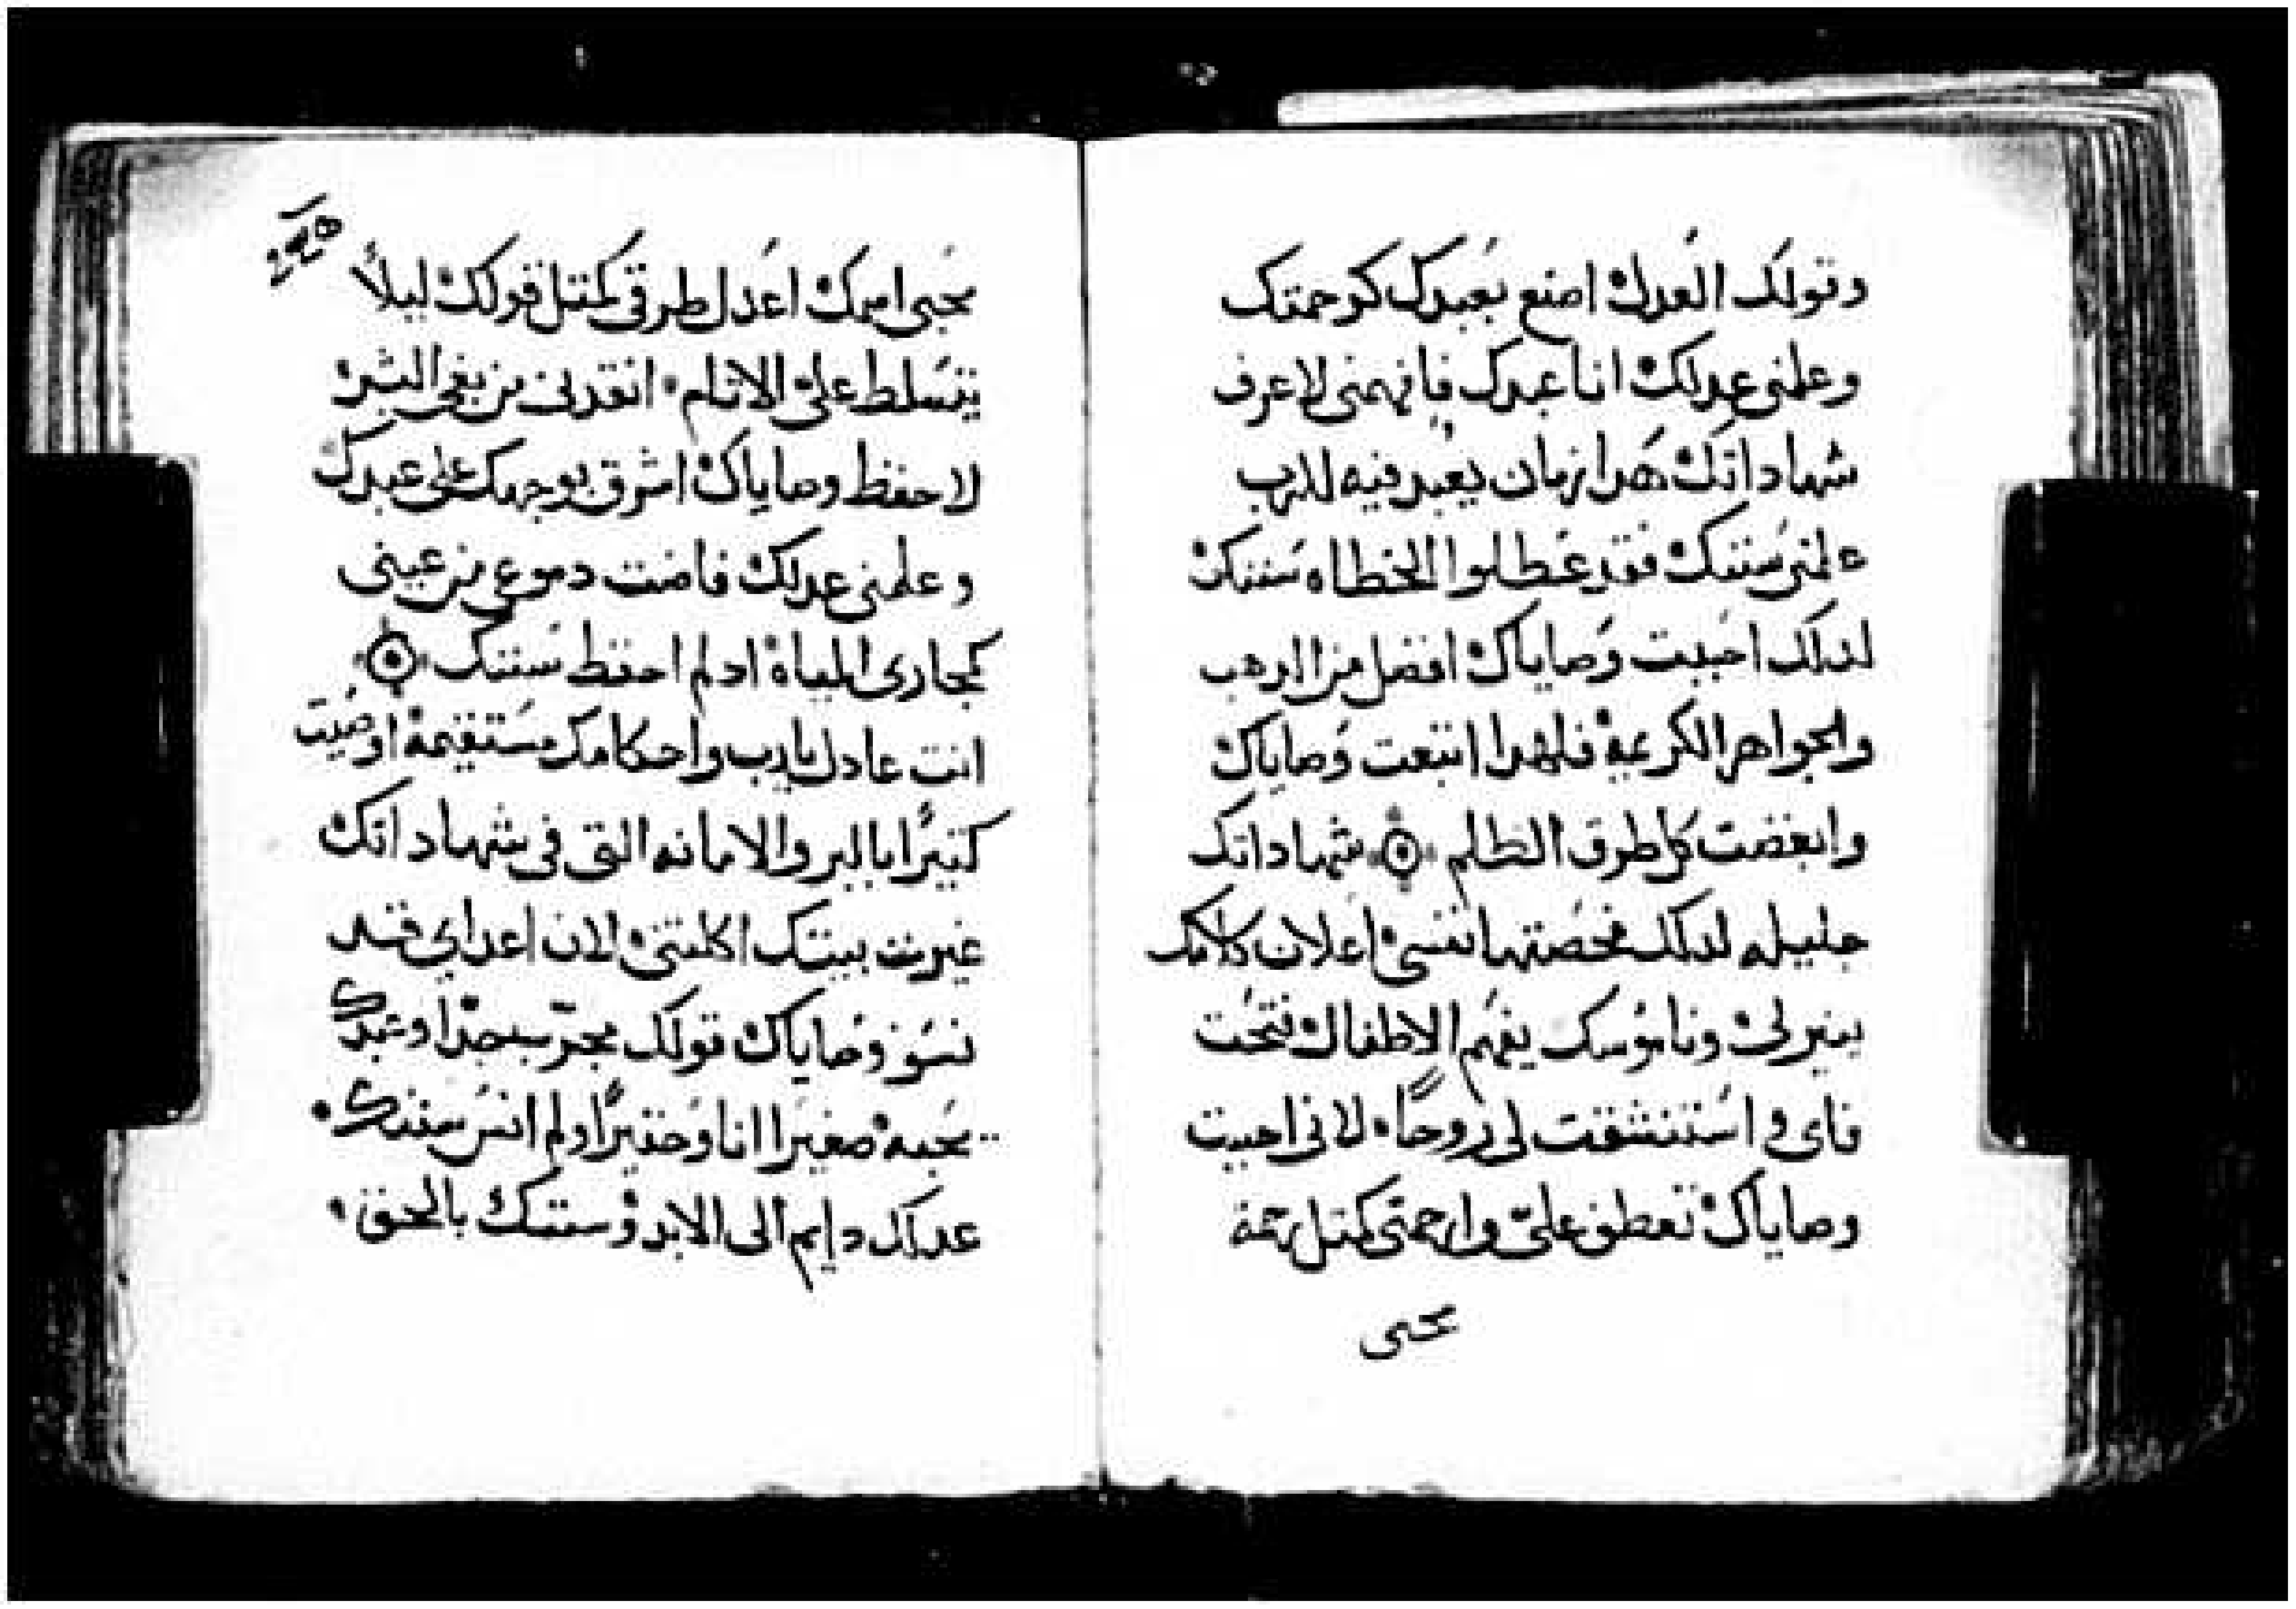 وقولك العدل اصنع بعبدك كرحمتك
وعلمني عدلك انا عبدك فافهمني لاعرف
شهاداتك هدا زمان يعبد فيه للرب
علمني سننك فقد عطلوا الخطاه سننك
لدلك احببت وصاياك افضل من الدهب
والجواهر الكريمة فلهدا اتبعت وصاياك
وابغضت كل طرق الظلم شهاداتك
جليله لدلك فحصتها نفسي اعلان كلامك
ينير لي وناموسك يفهم الاطفال فتحت
فاي و استنشقت لي روحًا لاني احببت
وصاياك تعطف عليّ وارحمني كمتل رحمة
محبي
محبي اسمك اعدل طرقي كمتل قولك ليلاً
يتسلط علي الاتام انقدني من بغي البشر
لاحفظ وصاياك اشرق بوجهك على عبدك
وعلمني عدلك فاضت دموعي من عيني
كمجاري المياة اد لم احفظ سننك
انت عادل يارب واحكامك مستقيمة اوصيت
كتيرًا بالبر والامانه التي في شهاداتك
غيرت بيتك اكلتني لان اعداي قد
نسوا وصاياك قولك مجرّب جدا وعبدك
يحبه صغيرا انا وحقيرًا ولم انس سننك
عدلك دايم الى الابد وسنتك بالحق